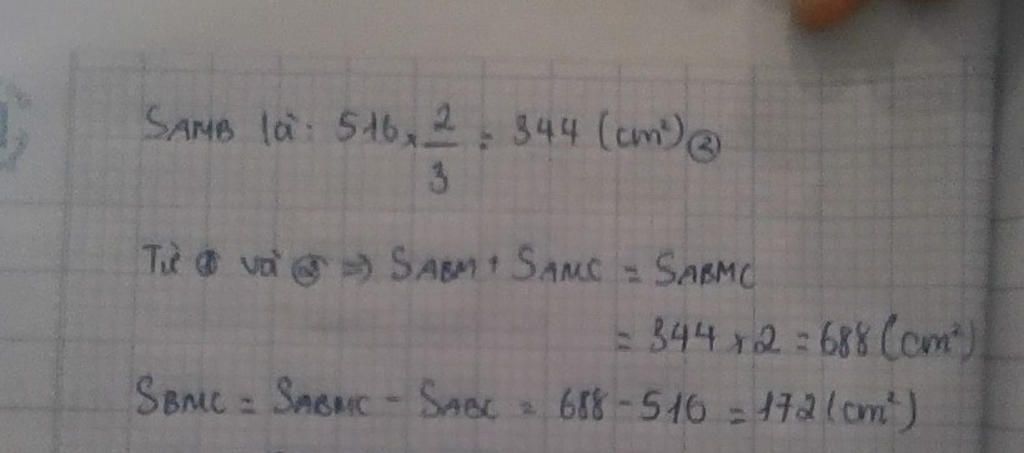 SAMB là: 516 x 2/3 = 344 (cm²) ②
Từ ① và ② => SABM + SAMC = SABMC
= 344 x 2 = 688 (cm²)
SBMC = SABMC - SABC = 688 - 516 = 172 (cm²)